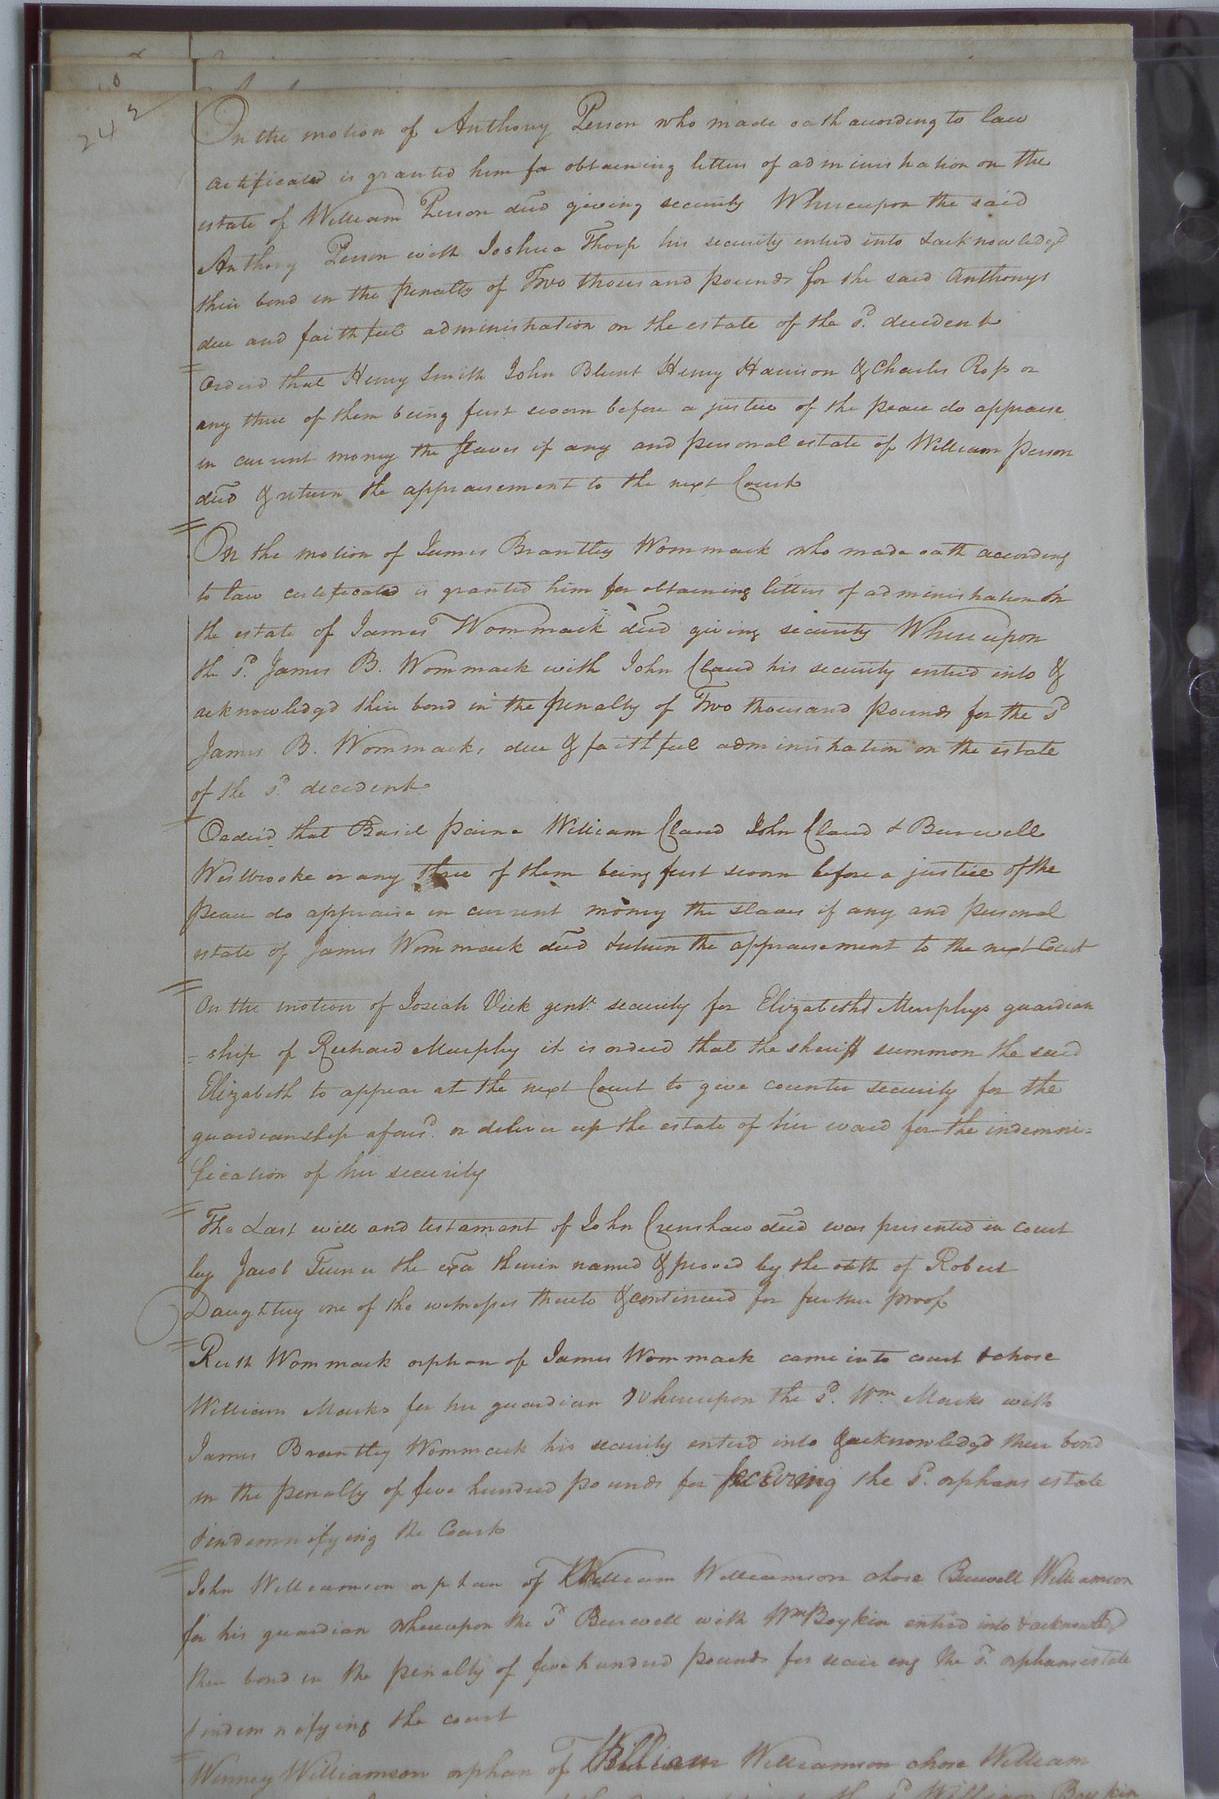 242
On the motion of Anthony Person who made oath according to law
certificate is granted him for obtaining letters of administration on the
estate of William Person decd giving security Whereupon the said
Anthony Person with Joshua Thorp his security entred into & acknowledgd
their bond in the penalty of Two thousand pounds for the said Anthonys
due and faithful administration on the estate of the sd. decedent
Orderd that Henry Smith John Blunt Henry Harrison & Charles Ross or
any three of them being first sworn before a justice of the peace do appraise
in current money the slaves if any and personal estate of William Person
decd & return the appraisement to the next Court
On the motion of James Brantley Wommack who made oath according
to law certificate is granted him for obtaining letters of administration on
the estate of James Wommack decd giving security Whereupon
the sd. James B. Wommack with John Claud his security entred into &
acknowledgd their bond in the penalty of Two thousand pounds for the sd
James B. Wommacks due & faithful administration on the estate
of the sd. decedent
Orderd that Basil Paine William Claud John Claud & Burwell
Westbrooke or any three of them being first sworn before a justice of the
peace do appraise in current money the slaves if any and personal
estate of James Wommack decd & return the appraisement to the next Court
On the motion of Josiah Vick gent. security for Elizabeth Murphys guardian
=ship of Richard Murphy it is orderd that the sheriff summon the said
Elizabeth to appear at the next Court to give counter security for the
guardianship aforsd. or deliver up the estate of her ward for the indemni=
fication of her security
The Last will and testament of John Crenshaw decd was presented in court
by Jacob Turner the exr therein named & proved by the oath of Robert
Daughtry one of the witnesses thereto & continued for further proof
Ruth Wommack orphan of James Wommack came into court & chose
William Marks for her guardian Whereupon the sd. Wm. Marks with
James Brantley Wommack his security entred into & acknowledgd their bond
in the penalty of five hundred pounds for securing the sd. orphans estate
& indemnifying the Court
John Williamson orphan of William Williamson chose Burwell Williamson
for his guardian whereupon the sd Burwell with Wm Boykin entred into & acknowledgd
their bond in the penalty of five hundred pounds for securing the sd. orphans estate
& indemnifying the court
Winney Williamson orphan of William Williamson chose William
the sd William Boykin